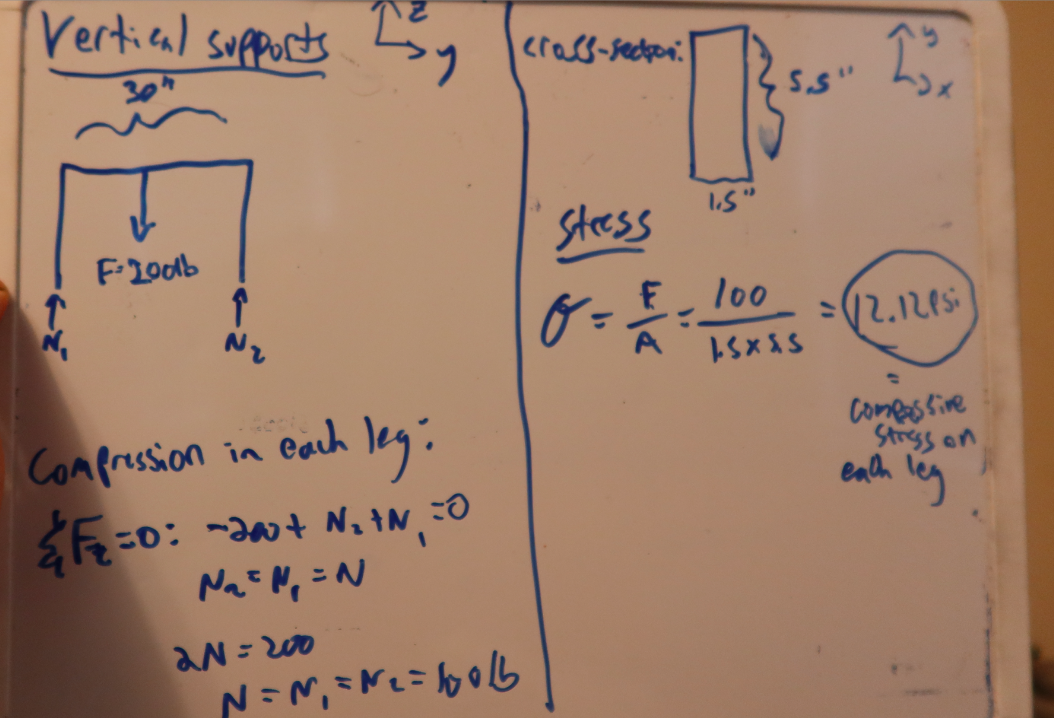 Vertical supports
z
y
30"
F=200lb
N₁
N₂
Compression in each leg:
ΣF_z=0: -200+ N₂+N₁=0
N₂=N₁=N
2N=200
N=N₁=N₂=100lb
cross-section:
5.5"
1.5"
y
x
Stress
σ = F/A = 100/1.5x5.5 = 12.12psi
=
compressive
stress on
each leg